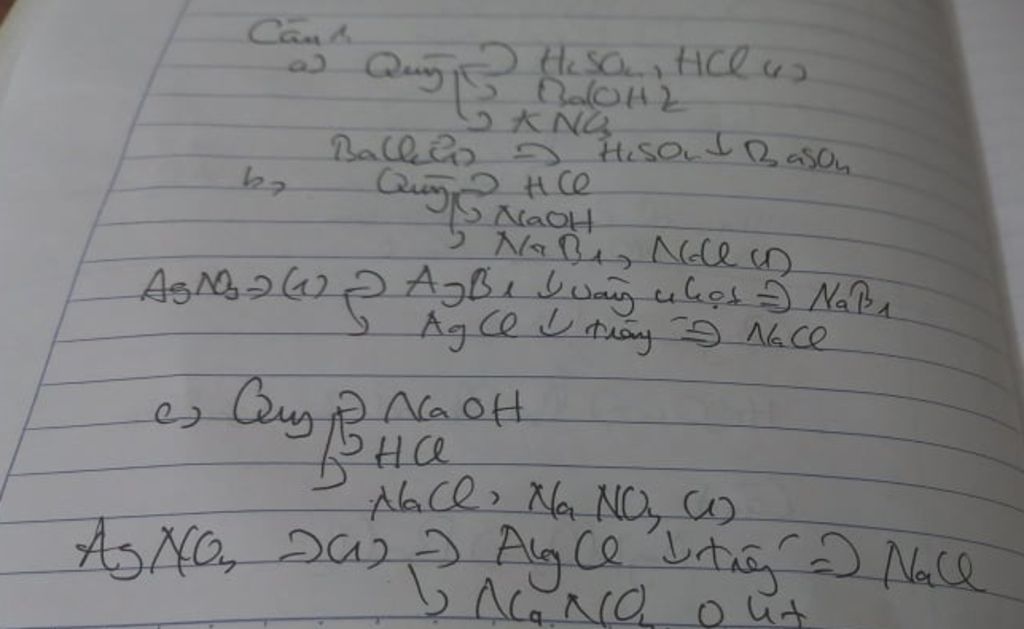 Câu 1.
a) Quỳ => H2SO4, HCl (1)
-> Ba(OH)2
-> KNO3
BaCl2 (1) => H2SO4 ↓ BaSO4
b, Quỳ => HCl
-> NaOH
-> NaBr, NaCl (1)
AgNO3 -> (1) => AgBr ↓ vàng nhạt => NaBr
-> AgCl ↓ trắng => NaCl
c, Quỳ => NaOH
-> HCl
NaCl, NaNO3 (1)
AgNO3 => (1) => AgCl ↓ trắng => NaCl
-> NaNO3 0 ht